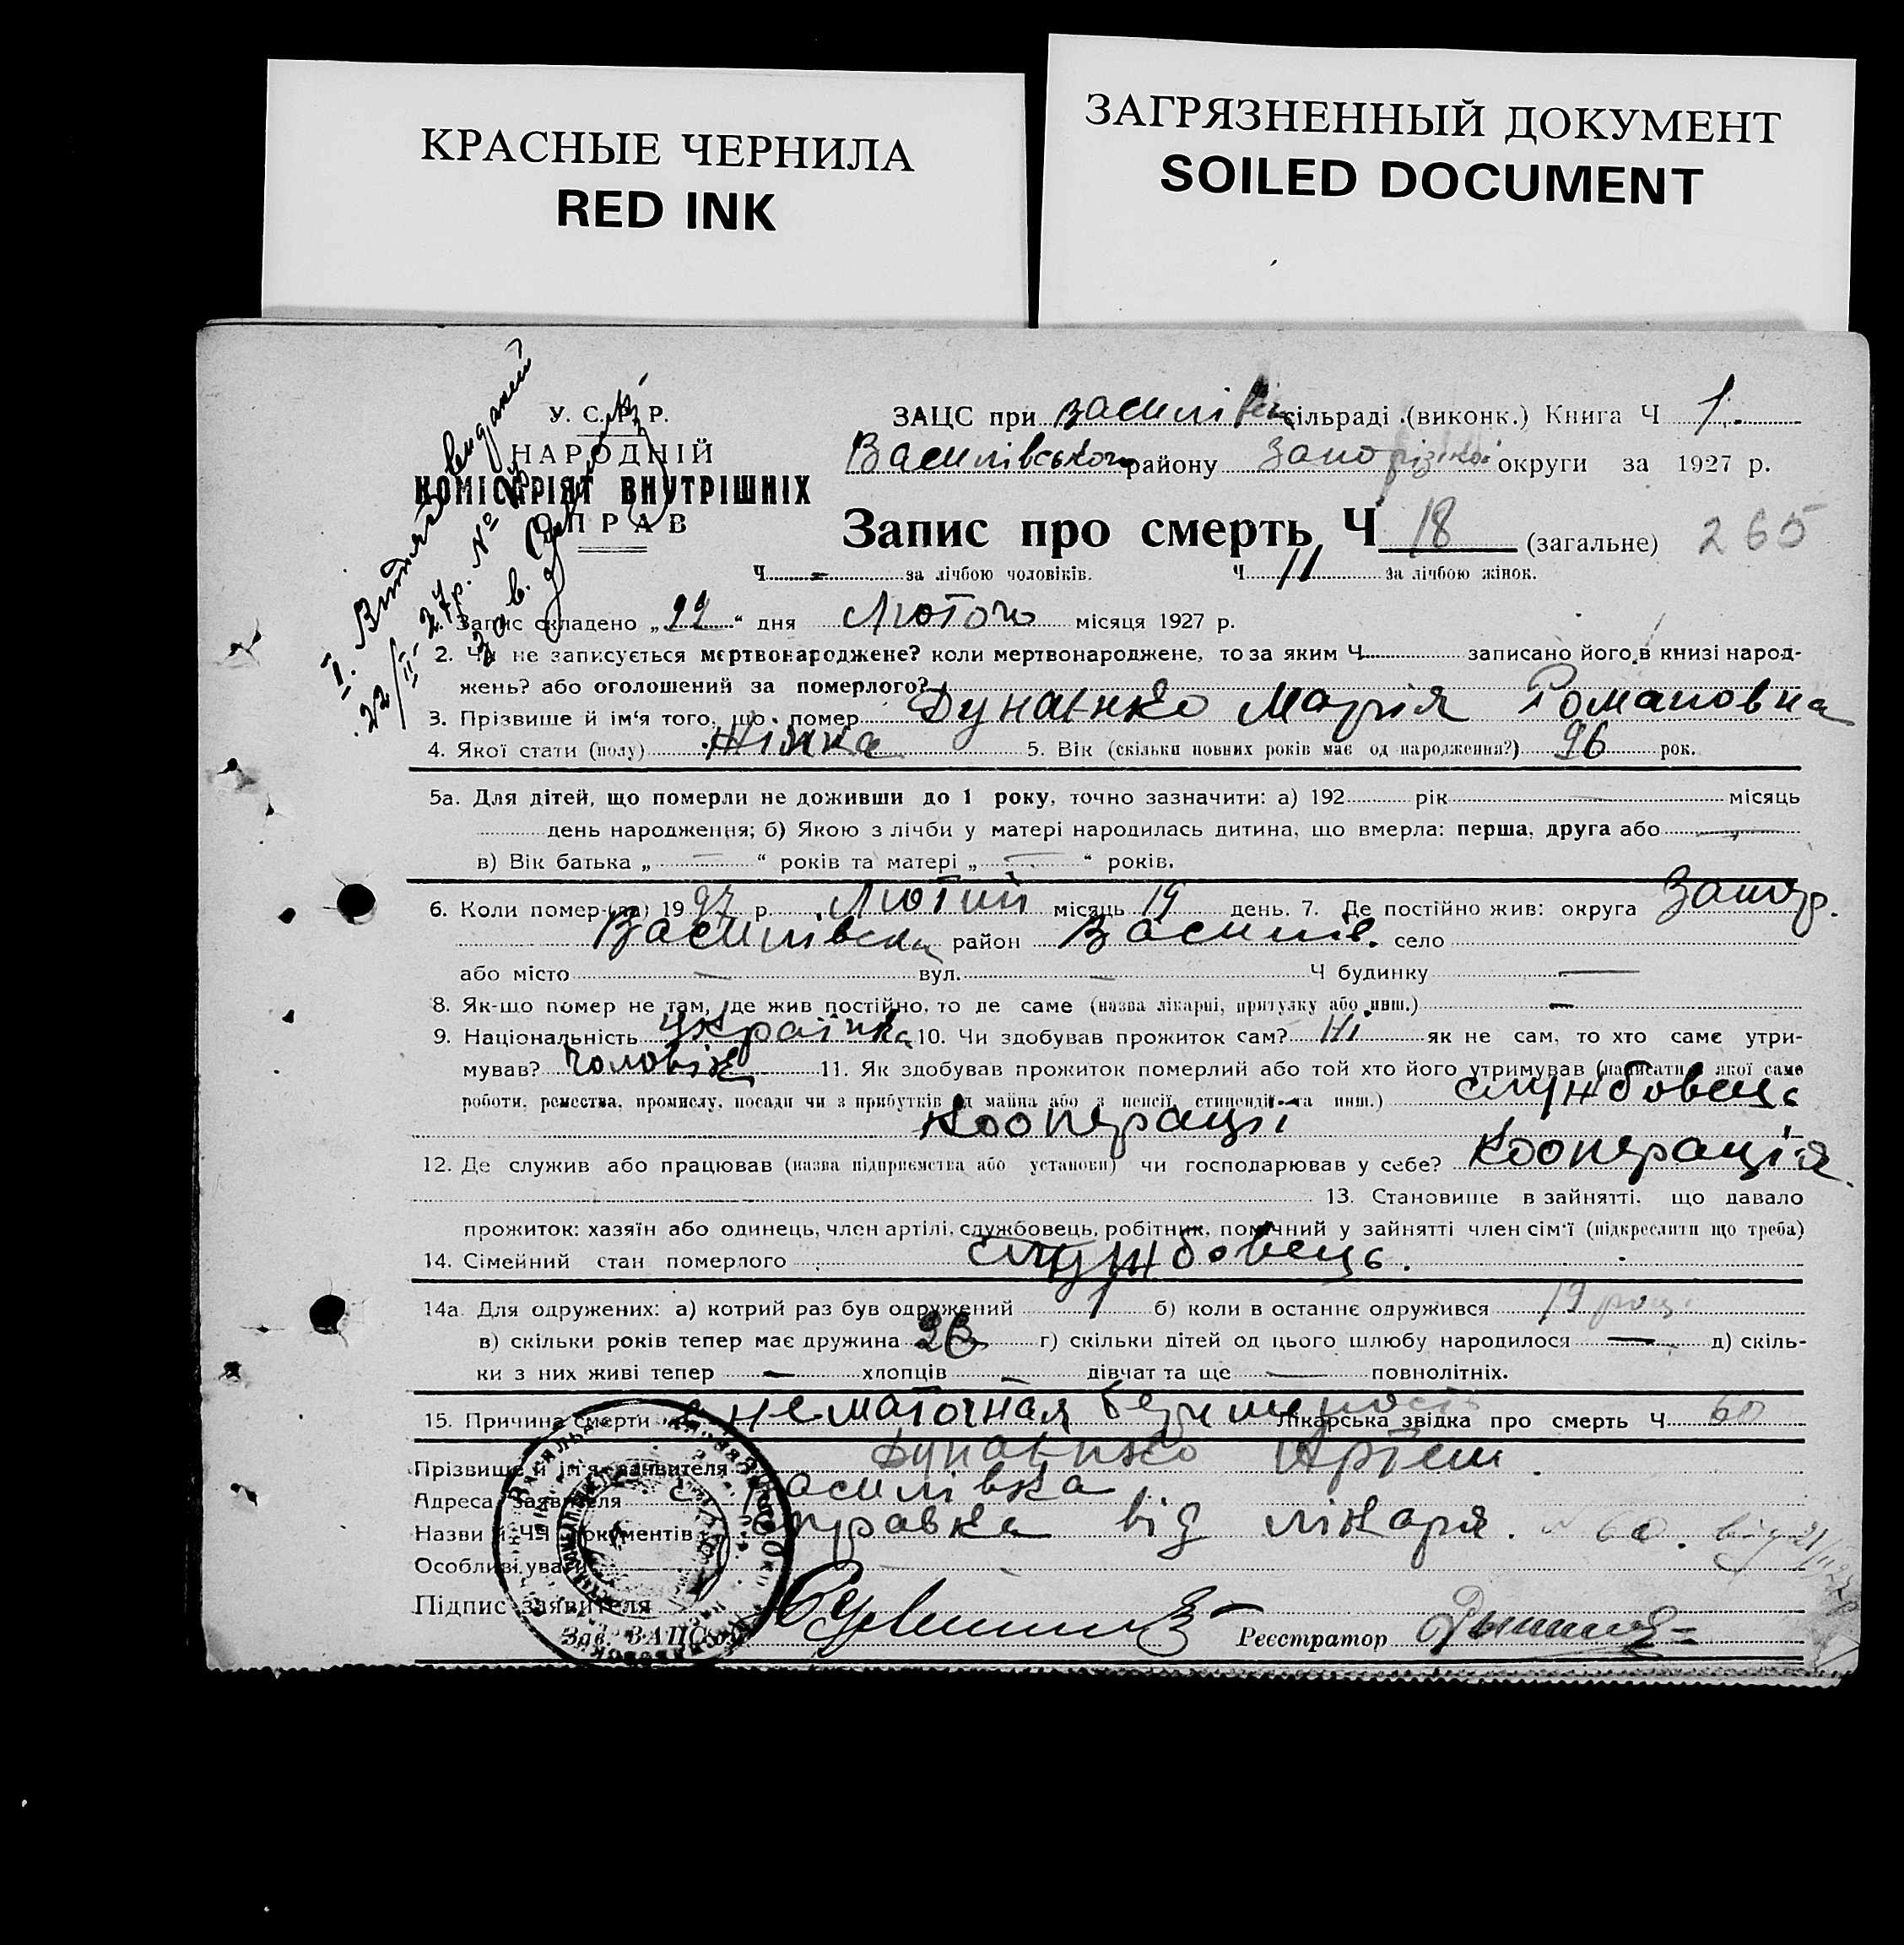 КРАСНЫЕ ЧЕРНИЛА
RED INK
ЗАГРЯЗНЕННЫЙ ДОКУМЕНТ
SOILED DOCUMENT
У. С. Р. Р.
НАРОДНІЙ
КОМІСАРІЯТ ВНУТРІШНІХ
СПРАВ
ЗАЦС при Василівск сільраді (виконк.) Книга Ч 1
Василівського району Запорізької округи за 1927 р.
Запис про смерть Ч 18 (загальне) 265
Ч - за лічбою чоловіків. Ч 11 за лічбою жінок.
Запис складено „22“ дня Лютого місяця 1927 р.
2. Чи не записується мертвонароджене? коли мертвонароджене, то за яким Ч записано його в книзі народ-
жень? або оголошений за померлого?
3. Прізвище й ім'я того, що помер Дунаенко Марія Романовна
4. Якої стати (полу) Жінка 5. Вік (скільки повних років має од народження?) 26 рок.
5а. Для дітей, що померли не доживши до 1 року, точно зазначити: а) 192 рік місяць
день народження; б) Якою з лічби у матері народилась дитина, що вмерла: перша, друга або —
в) Вік батька „ — “ років та матері „ — “ років.
6. Коли помер (ла) 1927 р. Лютий місяць 19 день. 7. Де постійно жив: округа Запор.
Василівськ район Василів. село
або місто — вул. — Ч будинку —
8. Як-що помер не там, де жив постійно, то де саме (назва лікарні, притулку або инш.) —
9. Національність Українка 10. Чи здобував прожиток сам? Ні як не сам, то хто саме утри-
мував? Чоловік 11. Як здобував прожиток померлий або той хто його утримував (написати з якої саме
роботи, ремества, промислу, посади чи з прибутків од майна або з пенсії, стипендії та инш.) службовець
Кооперації
12. Де служив або працював (назва підприємства або установи) чи господарював у себе? Кооперація
13. Становище в зайнятті, що давало
прожиток: хазяїн або одинець, член артілі, службовець, робітник, помічний у зайнятті член сім'ї (підкреслити що треба)
14. Сімейний стан померлого службовець.
14а. Для одружених: а) котрий раз був одружений 1 б) коли в останнє одружився 19 роц.
в) скільки років тепер має дружина г) скільки дітей од цього шлюбу народилося — д) скіль-
ки з них живі тепер — хлопців — дівчат та ще — повнолітніх.
15. Причина смерти внематочная беременность Лікарська звідка про смерть Ч 60
Прізвище й ім'я заявителя Дунаенко Артем.
Адреса заявителя с Василівка
Назви й Ч Ч документів справка від лікаря. № 60. від 21/II 27р
Особливі уваги
Підпис заявителя
Зав. ЗАЦС'ом Реєстратор